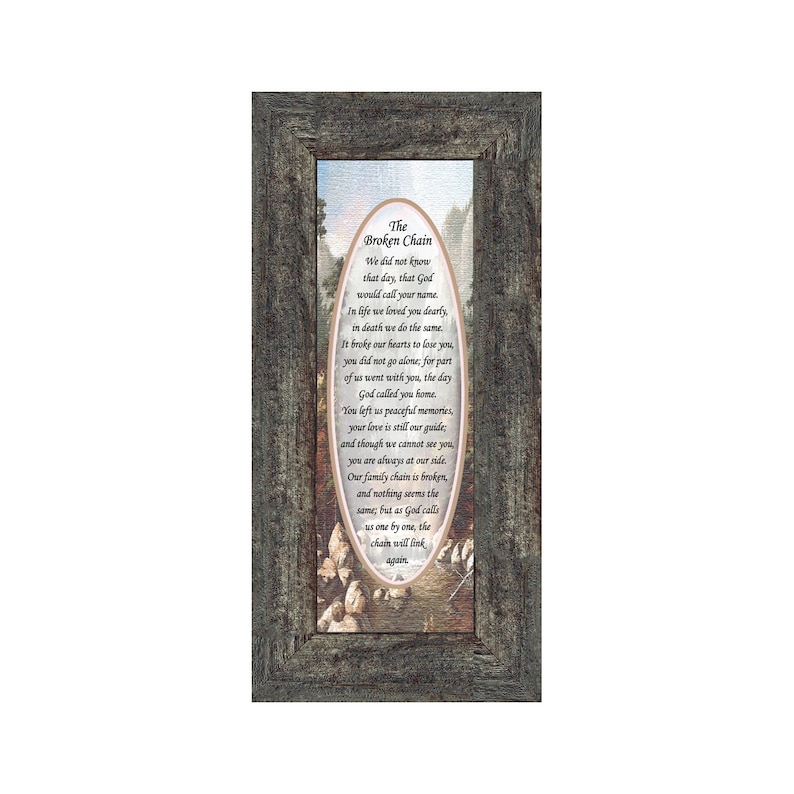 The
Broken Chain
We did not know
that day, that God
would call your name.
In life we loved you dearly,
in death we do the same.
It broke our hearts to lose you,
you did not go alone; for part
of us went with you, the day
God called you home.
You left us peaceful memories,
your love is still our guide;
and though we cannot see you,
you are always at our side.
Our family chain is broken,
and nothing seems the
same; but as God calls
us one by one, the
chain will link
again.